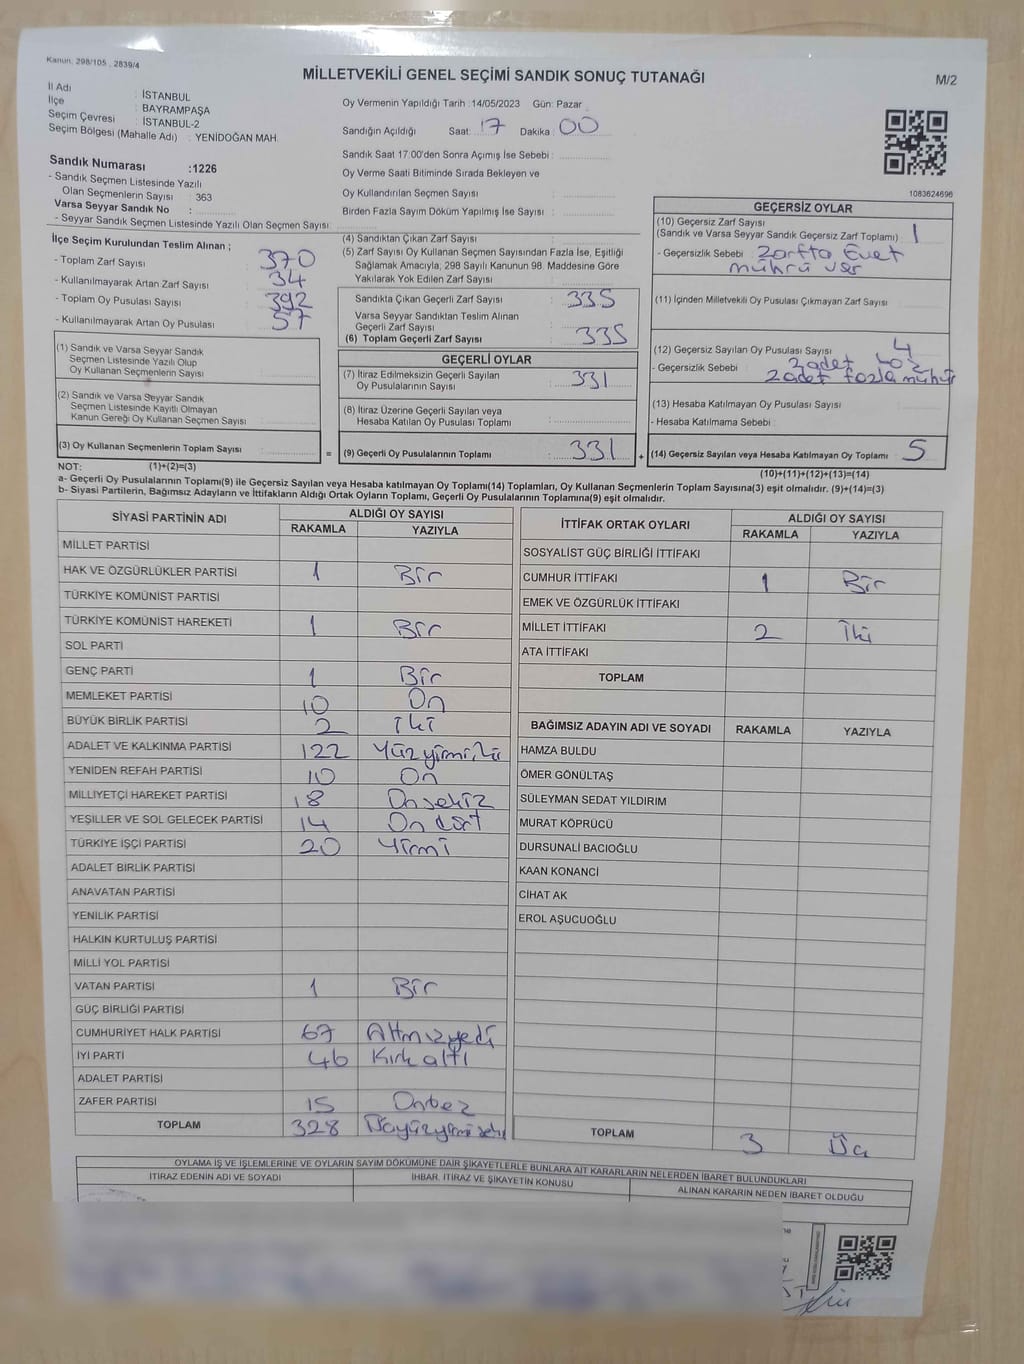 Kanun. 298/105 , 2839/4
MİLLETVEKİLİ GENEL SEÇİMİ SANDIK SONUÇ TUTANAĞI
M/2
İl Adı : İSTANBUL
İlçe : BAYRAMPAŞA
Seçim Çevresi : İSTANBUL-2
Seçim Bölgesi (Mahalle Adı) : YENİDOĞAN MAH.
Oy Vermenin Yapıldığı Tarih :14/05/2023 Gün: Pazar
Sandığın Açıldığı Saat: 17 Dakika : 00
Sandık Saat 17:00'den Sonra Açımış İse Sebebi :
Oy Verme Saati Bitiminde Sırada Bekleyen ve
Oy Kullandırılan Seçmen Sayısı :
Birden Fazla Sayım Döküm Yapılmış İse Sayısı :
1083624696
Sandık Numarası :1226
- Sandık Seçmen Listesinde Yazılı
Olan Seçmenlerin Sayısı : 363
Varsa Seyyar Sandık No :
- Seyyar Sandık Seçmen Listesinde Yazılı Olan Seçmen Sayısı:
İlçe Seçim Kurulundan Teslim Alınan ;
- Toplam Zarf Sayısı : 370
- Kullanılmayarak Artan Zarf Sayısı : 34
- Toplam Oy Pusulası Sayısı : 392
- Kullanılmayarak Artan Oy Pusulası : 57
(1) Sandık ve Varsa Seyyar Sandık
Seçmen Listesinde Yazılı Olup
Oy Kullanan Seçmenlerin Sayısı :
(2) Sandık ve Varsa Seyyar Sandık
Seçmen Listesinde Kayıtlı Olmayan
Kanun Gereği Oy Kullanan Seçmen Sayısı :
(3) Oy Kullanan Seçmenlerin Toplam Sayısı :
(4) Sandıktan Çıkan Zarf Sayısı :
(5) Zarf Sayısı Oy Kullanan Seçmen Sayısından Fazla İse, Eşitliği
Sağlamak Amacıyla, 298 Sayılı Kanunun 98. Maddesine Göre
Yakılarak Yok Edilen Zarf Sayısı :
Sandıkta Çıkan Geçerli Zarf Sayısı : 335
Varsa Seyyar Sandıktan Teslim Alınan
Geçerli Zarf Sayısı :
(6) Toplam Geçerli Zarf Sayısı : 335
GEÇERLİ OYLAR
(7) İtiraz Edilmeksizin Geçerli Sayılan
Oy Pusulalarının Sayısı : 331
(8) İtiraz Üzerine Geçerli Sayılan veya
Hesaba Katılan Oy Pusulası Toplamı :
= (9) Geçerli Oy Pusulalarının Toplamı : 331
GEÇERSİZ OYLAR
(10) Geçersiz Zarf Sayısı
(Sandık ve Varsa Seyyar Sandık Geçersiz Zarf Toplamı) : 1
- Geçersizlik Sebebi : Zarfta Evet
mührü var
(11) İçinden Milletvekili Oy Pusulası Çıkmayan Zarf Sayısı :
(12) Geçersiz Sayılan Oy Pusulası Sayısı : 4
- Geçersizlik Sebebi : 2 adet boş
2 adet fazla mühür
(13) Hesaba Katılmayan Oy Pusulası Sayısı :
- Hesaba Katılmama Sebebi :
+ (14) Geçersiz Sayılan veya Hesaba Katılmayan Oy Toplamı : 5
NOT: (1)+(2)=(3)
(10)+(11)+(12)+(13)=(14)
a- Geçerli Oy Pusulalarının Toplamı(9) ile Geçersiz Sayılan veya Hesaba katılmayan Oy Toplamı(14) Toplamları, Oy Kullanan Seçmenlerin Toplam Sayısına(3) eşit olmalıdır. (9)+(14)=(3)
b- Siyasi Partilerin, Bağımsız Adayların ve İttifakların Aldığı Ortak Oyların Toplamı, Geçerli Oy Pusulalarının Toplamına(9) eşit olmalıdır.
SİYASİ PARTİNİN ADI ALDIĞI OY SAYISI
RAKAMLA YAZIYLA
MİLLET PARTİSİ
HAK VE ÖZGÜRLÜKLER PARTİSİ 1 Bir
TÜRKİYE KOMÜNİST PARTİSİ
TÜRKİYE KOMÜNİST HAREKETİ 1 Bir
SOL PARTİ
GENÇ PARTİ 1 Bir
MEMLEKET PARTİSİ 10 On
BÜYÜK BİRLİK PARTİSİ 2 iki
ADALET VE KALKINMA PARTİSİ 122 Yüzyirmiiki
YENİDEN REFAH PARTİSİ 10 On
MİLLİYETÇİ HAREKET PARTİSİ 18 Onsekiz
YEŞİLLER VE SOL GELECEK PARTİSİ 14 On dört
TÜRKİYE İŞÇİ PARTİSİ 20 Yirmi
ADALET BİRLİK PARTİSİ
ANAVATAN PARTİSİ
YENİLİK PARTİSİ
HALKIN KURTULUŞ PARTİSİ
MİLLİ YOL PARTİSİ
VATAN PARTİSİ 1 Bir
GÜÇ BİRLİĞİ PARTİSİ
CUMHURİYET HALK PARTİSİ 67 Altmışyedi
İYİ PARTİ 46 Kırk altı
ADALET PARTİSİ
ZAFER PARTİSİ 15 Onbeş
TOPLAM 328
İTTİFAK ORTAK OYLARI ALDIĞI OY SAYISI
RAKAMLA YAZIYLA
SOSYALİST GÜÇ BİRLİĞİ İTTİFAKI
CUMHUR İTTİFAKI 1 Bir
EMEK VE ÖZGÜRLÜK İTTİFAKI
MİLLET İTTİFAKI 2 İki
ATA İTTİFAKI
TOPLAM
BAĞIMSIZ ADAYIN ADI VE SOYADI RAKAMLA YAZIYLA
HAMZA BULDU
ÖMER GÖNÜLTAŞ
SÜLEYMAN SEDAT YILDIRIM
MURAT KÖPRÜCÜ
DURSUNALİ BACIOĞLU
KAAN KONANCİ
CİHAT AK
EROL AŞUCUOĞLU
TOPLAM 3 Üç
OYLAMA İŞ VE İŞLEMLERİNE VE OYLARIN SAYIM DÖKÜMÜNE DAİR ŞİKAYETLERLE BUNLARA AİT KARARLARIN NELERDEN İBARET BULUNDUKLARI
İTİRAZ EDENİN ADI VE SOYADI
İHBAR, İTİRAZ VE ŞİKAYETİN KONUSU
ALINAN KARARIN NEDEN İBARET OLDUĞU